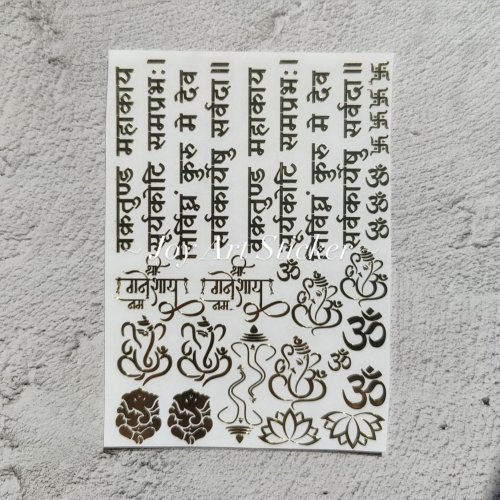 वक्रतुण्ड महाकाय
सूर्यकोटि समप्रभ:।
निर्विघ्नं कुरु मे देव
सर्वकार्येषु सर्वदा॥
वक्रतुण्ड महाकाय
सूर्यकोटि समप्रभ:।
निर्विघ्नं कुरु मे देव
सर्वकार्येषु सर्वदा॥
ॐ ॐ ॐ
Joy Art Sticker
श्री
गनेशाय
नम:
श्री
गनेशाय
नम:
ॐ
ॐ
ॐ
ॐ